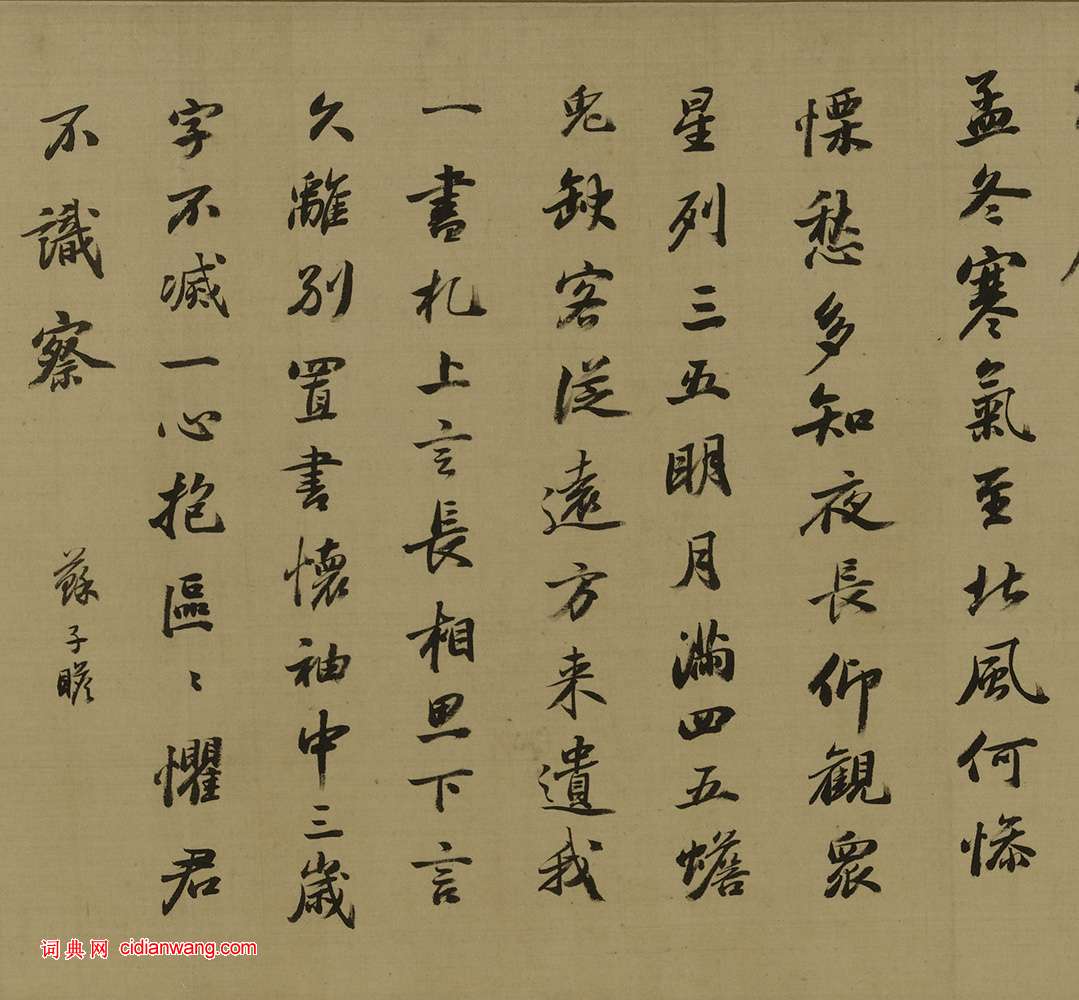 孟冬寒氣至北風何慘
慄愁多知夜長仰觀眾
星列三五明月滿四五蟾
兔缺客從遠方来遺我
一書札上言長相思下言
久離別置書懷袖中三歲
字不滅一心抱區〻懼君
不識察
蘇子瞻
词典网 cidianwang.com